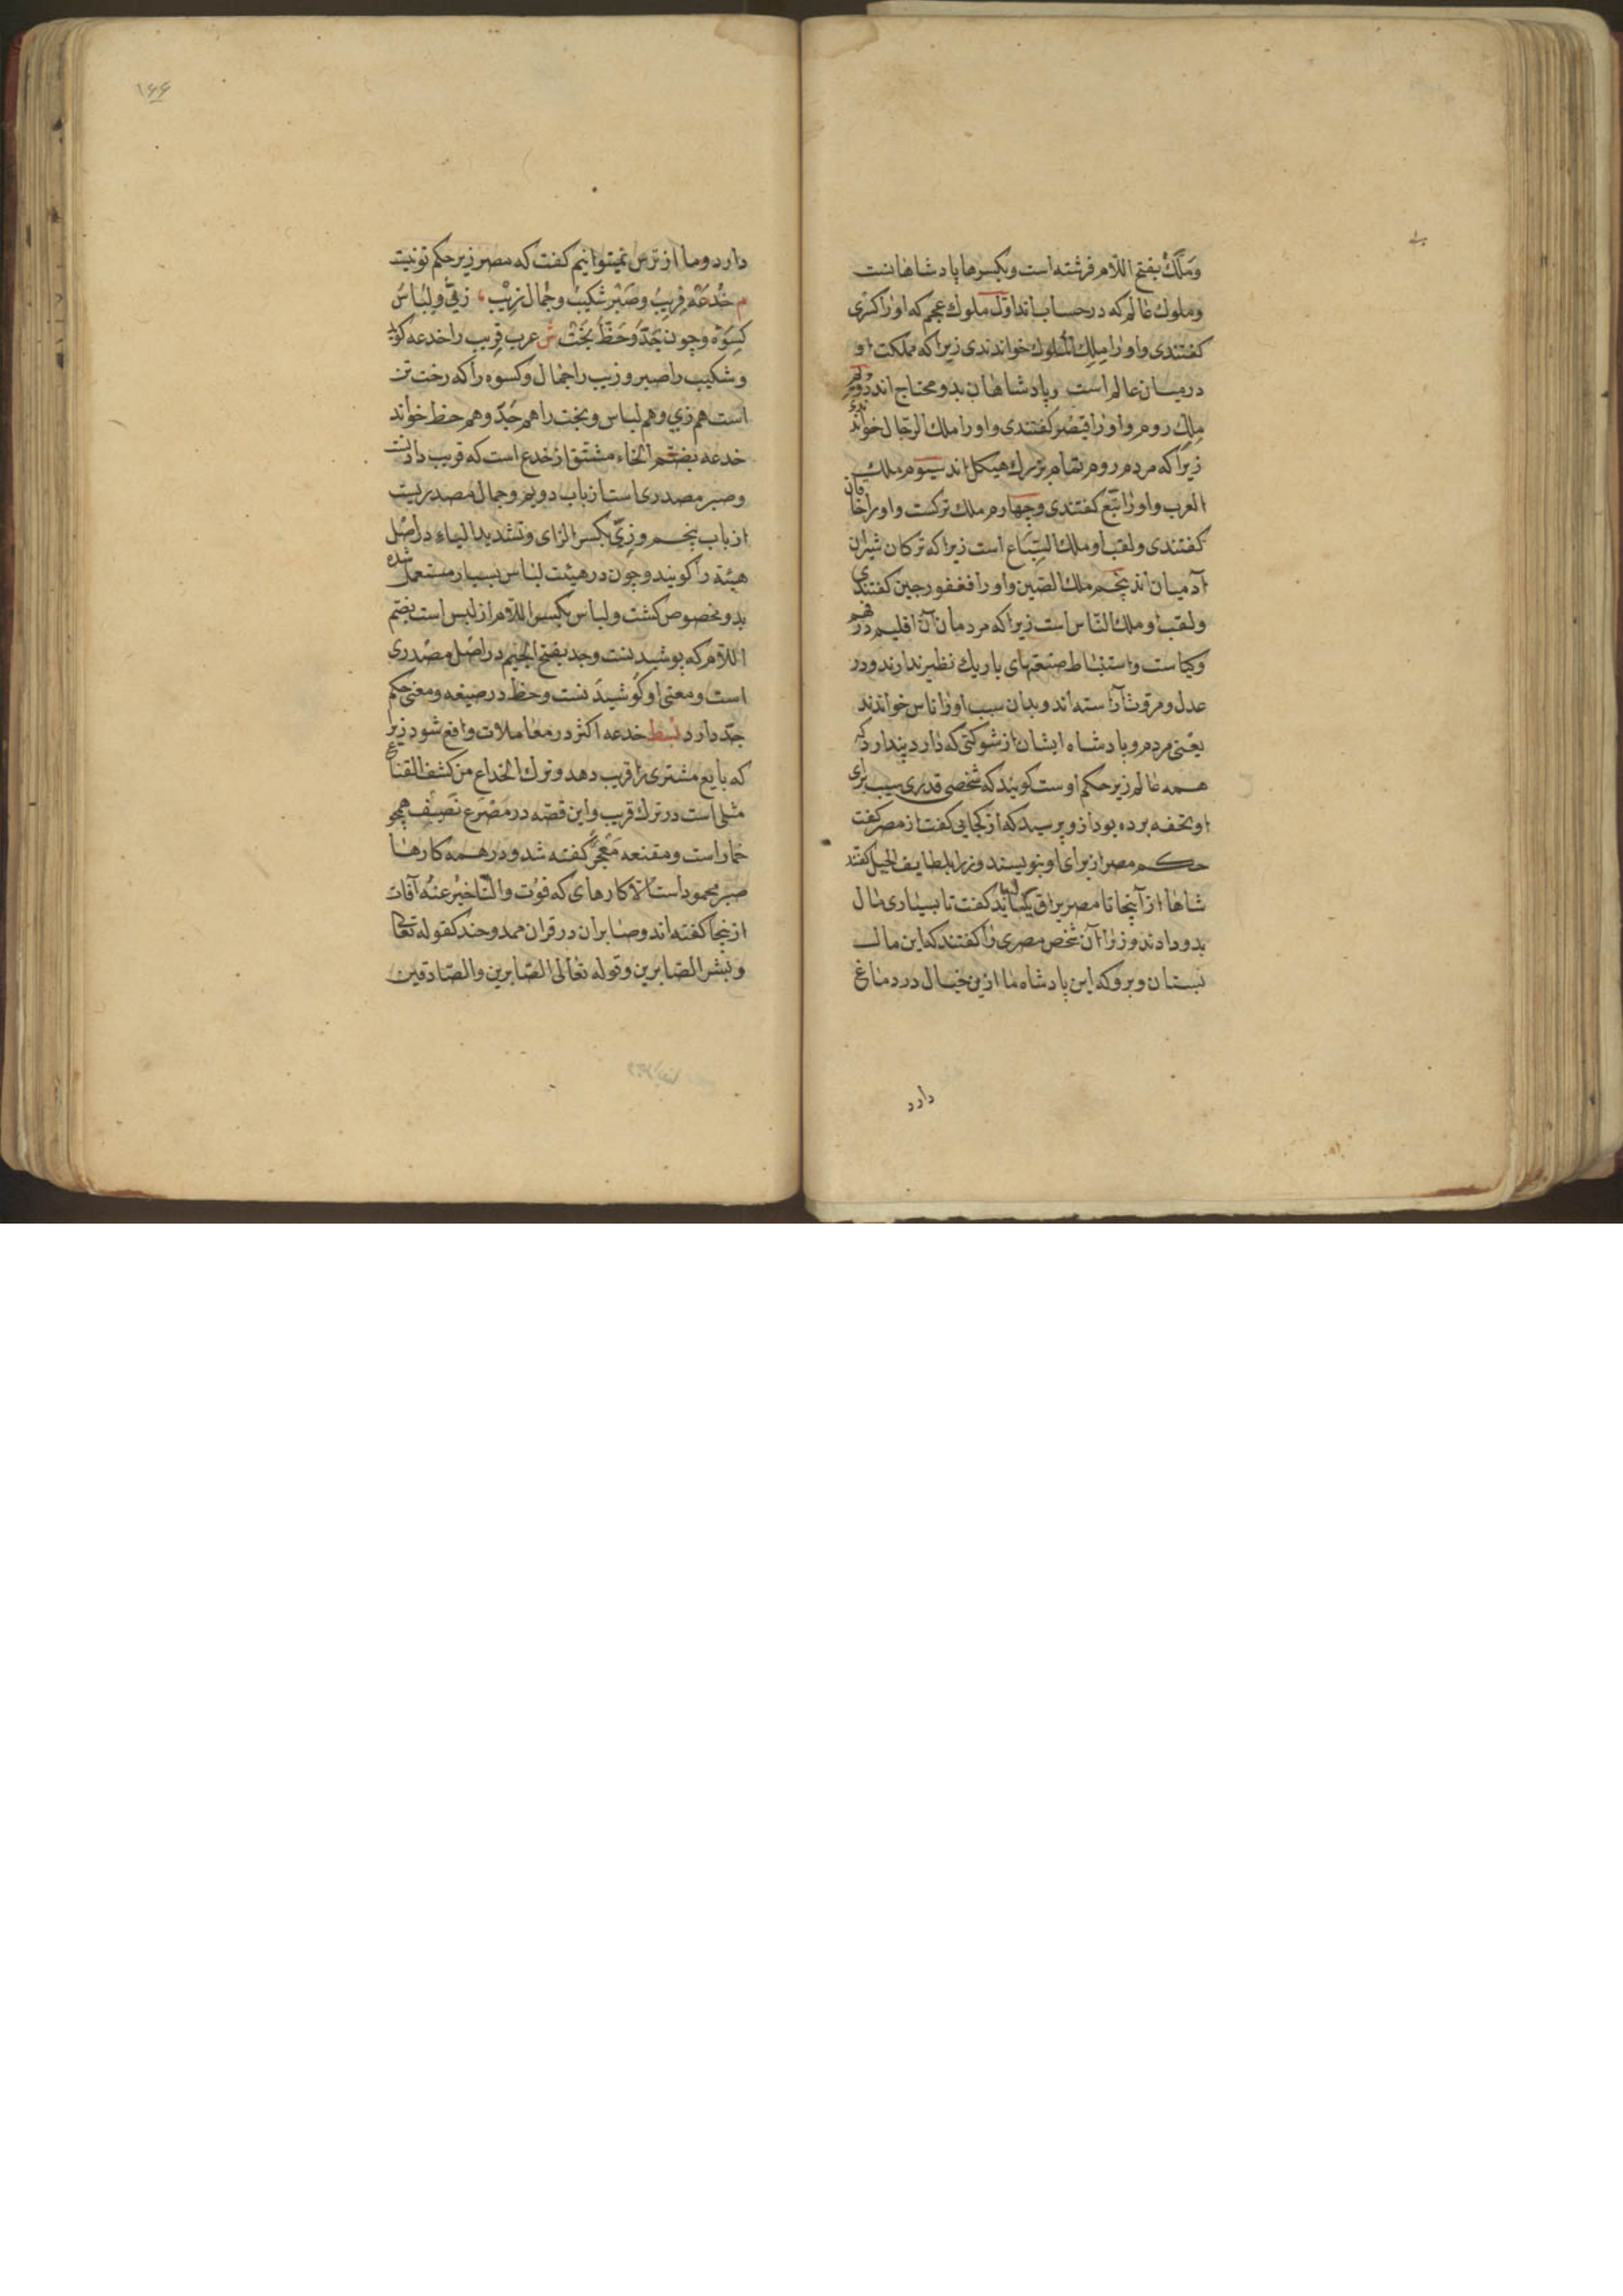 وَمَلَك بفتح اللام فرشته است و بكسرها پادشاهانست
وملوك عالم كه در حساب اند اول ملوك عجم كه او را كسری
كفتندی و او را ملك الملوك خواندندی زیرا كه مملكت او
در میان عالم است و پادشاهان بدو محتاج اند دویم
ملك روم و او را قیصر كفتندی و او را ملك الرجال خواندندی
زیرا كه مردم روم بقام بزرك هیكل اند سیوم ملك
العرب و او را تبّع كفتندی و چهارم ملك تركست و او را خاقان
كفتندی و لقب او ملك السباع است زیرا كه تركان شیران
آدمیان اند پنجم ملك الصین و او را فغفور چین كفتندی
و لقب او ملك النّاس است زیرا كه مردمان آن اقلیم در فهم
و كیاست و استنباط صنعتهای باریك نظیر ندارند و در
عدل و مروت آراسته اند و بدان سبب او را ناس خواندند
یعنی مردم و پادشاه ایشان از شوكتی كه دارد پندارد كه
همه عالم زیر حكم اوست كویند كه شخصی قدری سیب برای
او تحفه برده بود ازو پرسید كه از كجایی كفت از مصر كفت
حكم مصر از برای او بنویسند وزرا بلطایف الحیل كفتند
شاها از آنجا تا مصر یراق كفت تا بسیاری مال
بدو دادند وزرا آن شخص مصری را كفتند كه این مال
بستان و برو كه این پادشاه ما ازین خیال در دماغ
دارد
١٤٤
دارد و ما از ترس نمیتوانیم كفت كه مصر زیر حكم تو نیست
م خُدعَة فِریبُ وصَبْر شكیبُ وجَمال زِیْب، زیّ و لِباسُ
كِسْوَة و چون جَدّ وحَظّ بَخْت ش عرب فریب را خدعه كوید
و شكیب را صبر و زیب را جمال و كسوه را كه رخت تن
است هم زی و هم لباس و بخت را هم جَدّ و هم حظ خواند
خدعه بضم الخاء مشتق از خدع است كه فریب دادنست
و صبر مصدری است از باب دویم و جمال مصدریست
از باب پنجم و زیّ بكسر الزای و تشدید الیاء در اصل
هیئة را كویند و چون در هیئت لباس بسیار مستعمل شده
بدو مخصوص كشت و لباس بكسر اللام از لبس است بضم
اللام كه پوشیدنست و جد بفتح الجیم در اصل مصدری
است و معنی او كوشیدنست و حظ در صیغه و معنی حكم
جدّ دارد بسط خدعه اكثر در معاملات واقع شود زیرا
كه بایع مشتری را فریب دهد و ترك الخداع من كشف القناع
مثلی است در ترك فریب و این قصه در مَصْرَع نَصِیف همچو
خمار است و مقنعه مَعْجَر كفته شد و در همه كارها
صبر محمود است الا كارهای كه فوت و التاخیر عنه آفات
ازینجا كفته اند و صابران در قران ممدوحند كقوله تعالی
و بشر الصابرین و قوله تعالی الصّابرین و الصّادقین